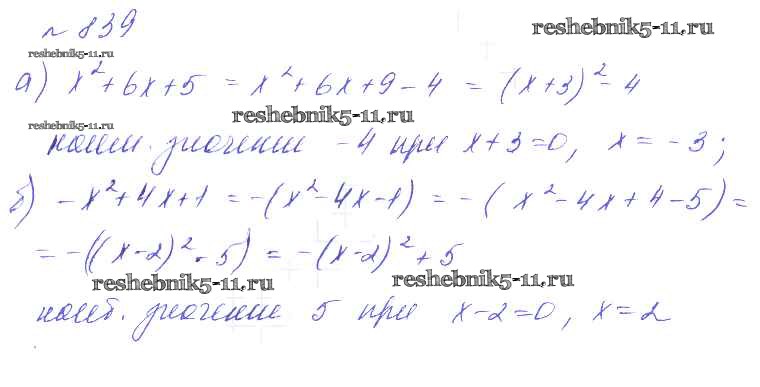 № 839
reshebnik5-11.ru
reshebnik5-11.ru
а) x²+6x+5 = x²+6x+9-4 = (x+3)²-4
reshebnik5-11.ru
reshebnik5-11.ru
наим. значение -4 при x+3=0, x=-3;
б) -x²+4x+1 = -(x²-4x-1) = -(x²-4x+4-5)=
= -((x-2)²-5) = -(x-2)²+5
reshebnik5-11.ru
reshebnik5-11.ru
наиб. значение 5 при x-2=0, x=2